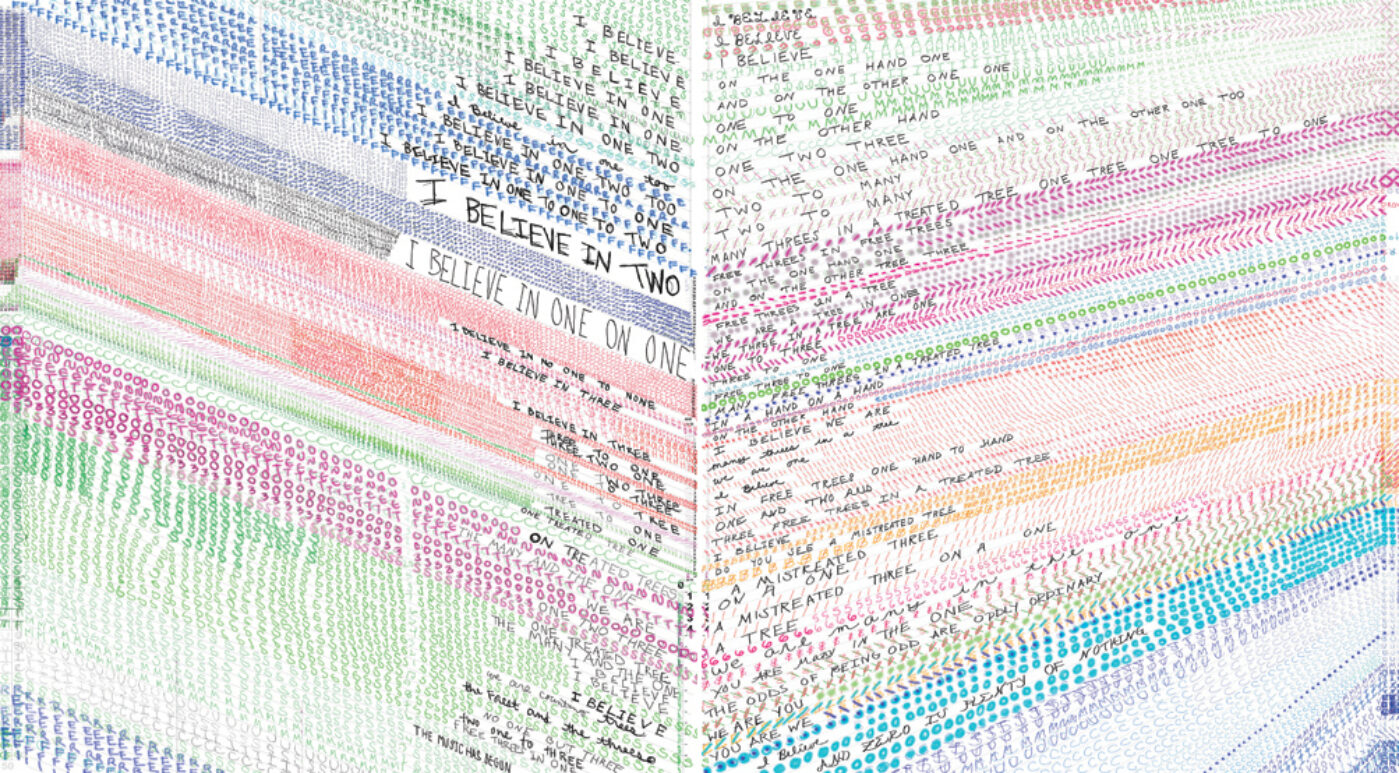 I BELIEVE
I BELIEVE
I BELIEVE
I BELIEVE IN ONE
I BELIEVE IN ONE
I BELIEVE IN ONE TWO
I Believe in one too
I BELIEVE IN ONE TWO TOO
I BELIEVE IN ONE TO ONE
I BELIEVE IN ONE TO ONE TO TWO
I BELIEVE IN TWO
I BELIEVE IN ONE ON ONE
I BELIEVE IN NO ONE TO NONE
I BELIEVE IN THREE
I BELIEVE IN THREE
THREE TO ONE
THREE TWO ONE
ONE
ONE
TREE
TREATED ONE
ONE TREATED TREE
ONE
ON TREATED TRESS
THE MANY AND THE ONE
WE ARE
ONE TWO THREE
ONE TREATED TREE
THE MANY AND THE ONE
I BELIEVE
I BELIEVE
we are
the freest and the threes
NO ONE BUT THREE
two one to THREE
FREE THREE IN ONE
THE MUSIC HAS BEGUN
I BELIEVE
I BELIEVE
I BELIEVE
ON THE ONE HAND ONE
AND ON THE OTHER ONE ONE
ONE TO ONE
ON THE OTHER HAND
ONE TWO THREE
ON THE ONE HAND ONE AND ON THE OTHER ONE TOO
TWO TO MANY
TWO TO MANY
MANY THREES IN A TREATED TREE ONE TREE ONE TREE TO ONE
FREE THREES IN FREE TREES
ON THE ONE HAND ONE
AND ON THE OTHER THREE
FREE THREES IN A TREE
WE ARE IN A TREE IN ONE
WE THREE IN A TREE ARE ONE
ONE TO THREE
THREE TO ONE
FREE THREE TO ONE
MANY FREE THREES IN A TREATED TREE
IN A HAND ON A HAND
ON THE OTHER HAND
I BELIEVE WE ARE
many threes in a tree
we are one
I Believe
IN FREE TREES ONE HAND TO HAND
ONE AND TWO AND
THREE FREE TREES IN A TREATED TREE
I BELIEVE
DO YOU SEE A MISTREATED TREE
A MISTREATED THREE
ON A ONE THREE ON A ONE
A MISTREATED
A TREE
we are many in the one
YOU ARE MANY IN THE ONE
THE ODDS OF BEING ODD ARE ODDLY ORDINARY
WE ARE YOU
YOU ARE WE
I Believe
AND ZERO IS PLENTY OF NOTHING